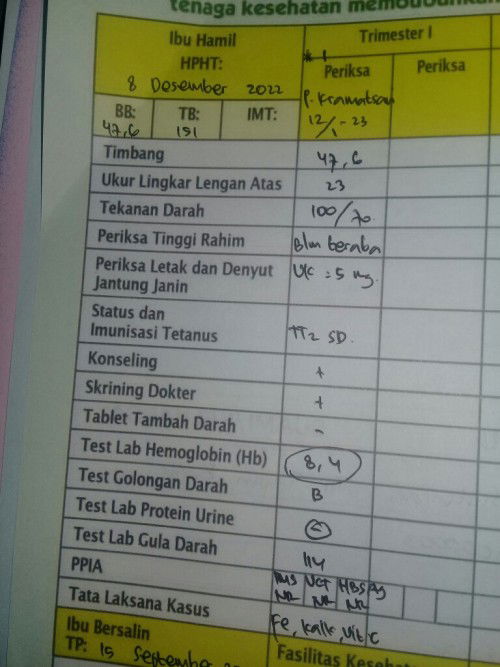 tenaga kesehatan
Ibu Hamil
HPHT:
8 Desember 2022
Trimester I
Periksa
Periksa
12/1-23
BB:
47,6
TB:
151
IMT:
Timbang
47,6
Ukur Lingkar Lengan Atas
23
Tekanan Darah
100/70
Periksa Tinggi Rahim
Blm teraba
Periksa Letak dan Denyut
Jantung Janin
UK = 5 mg
Status dan
Imunisasi Tetanus
TT2 SD.
Konseling
+
Skrining Dokter
+
Tablet Tambah Darah
-
Test Lab Hemoglobin (Hb)
8,4
Test Golongan Darah
B
Test Lab Protein Urine
Test Lab Gula Darah
114
PPIA
VCT HBSAg
NR NR NR
Tata Laksana Kasus
Fe, Kalk, Vit C
Ibu Bersalin
TP: 15 September
Fasilitas